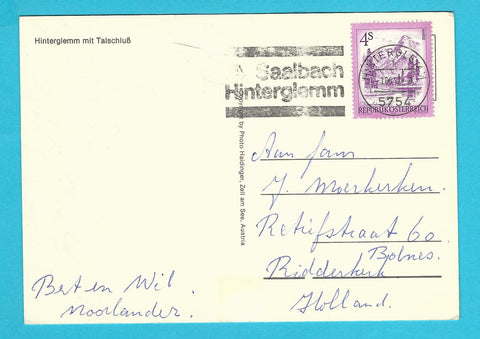 Hinterglemm mit Talschluß
Saalbach
Hinterglemm
4S
REPUBLIK ÖSTERREICH
HINTERGLEMM
5754
by Photo Haidinger, Zell am See, Austria
Aan fam
J. Moerkerken.
Retiefstraat 60
Bolnes.
Ridderkerk
Holland.
Bert en Wil
Noorlander.